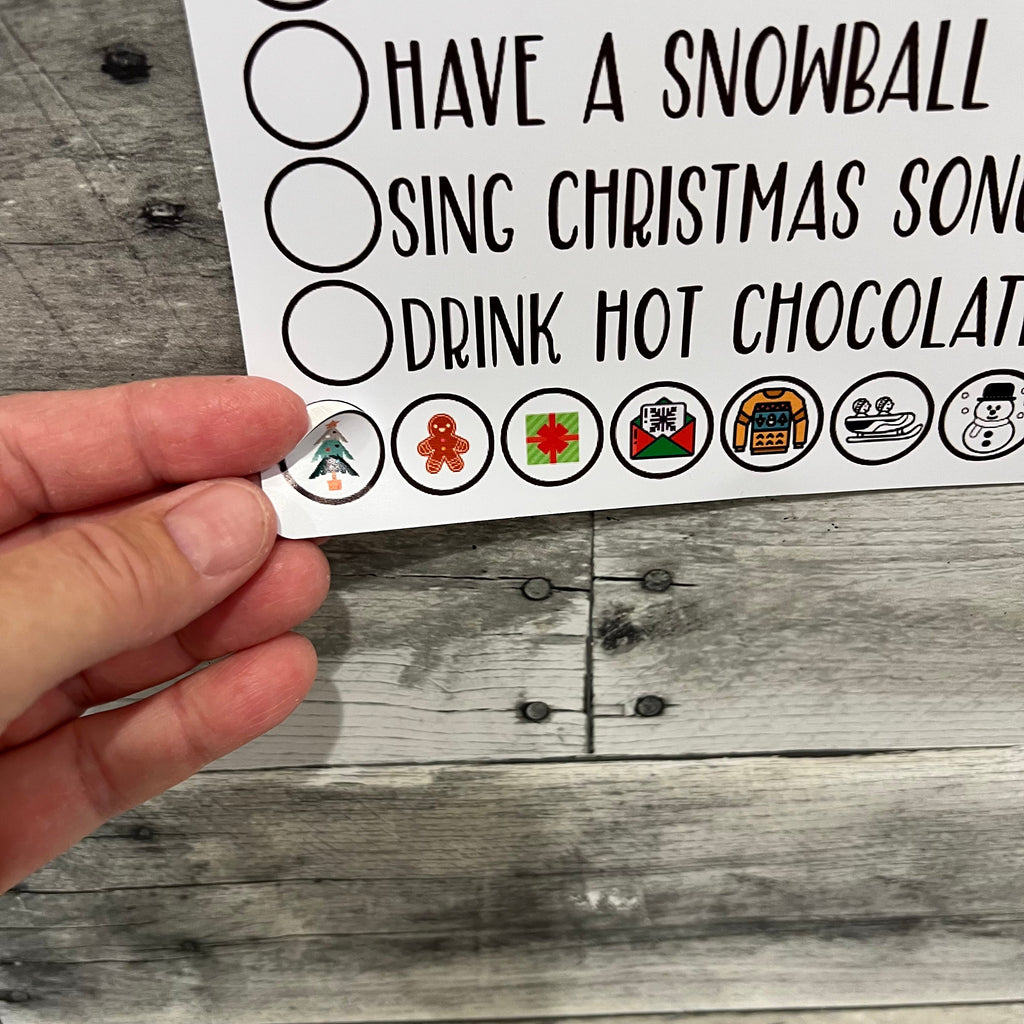 HAVE A SNOWBALL
SING CHRISTMAS SONG
DRINK HOT CHOCOLAT